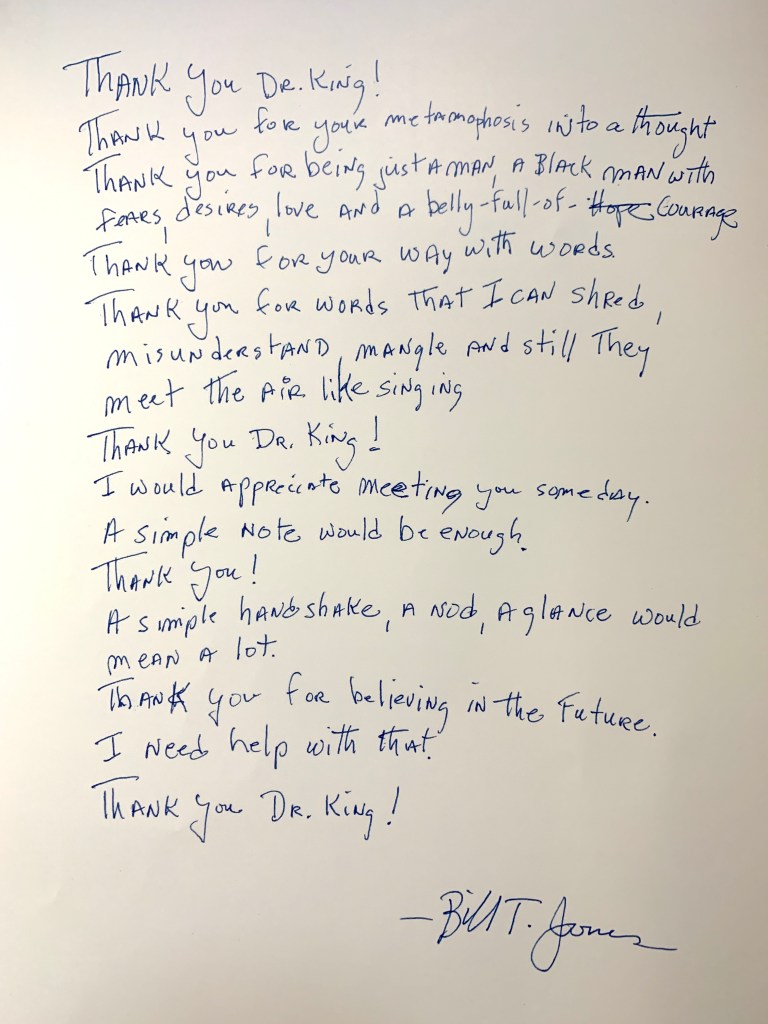 Thank you Dr. King!
Thank you for your metamophosis into a thought
Thank you for being just a man, a Black man with
fears, desires, love and a belly-full-of- Hope Courage
Thank you for your way with words.
Thank you for words that I can shred,
misunderstand, mangle and still They
meet the air like singing
Thank you Dr. King!
I would appreciate meeting you someday.
A simple note would be enough.
Thank you!
A simple handshake, a nod, a glance would
mean a lot.
Thank you for believing in the Future.
I need help with that.
Thank you Dr. King!
—Bill T. Jones